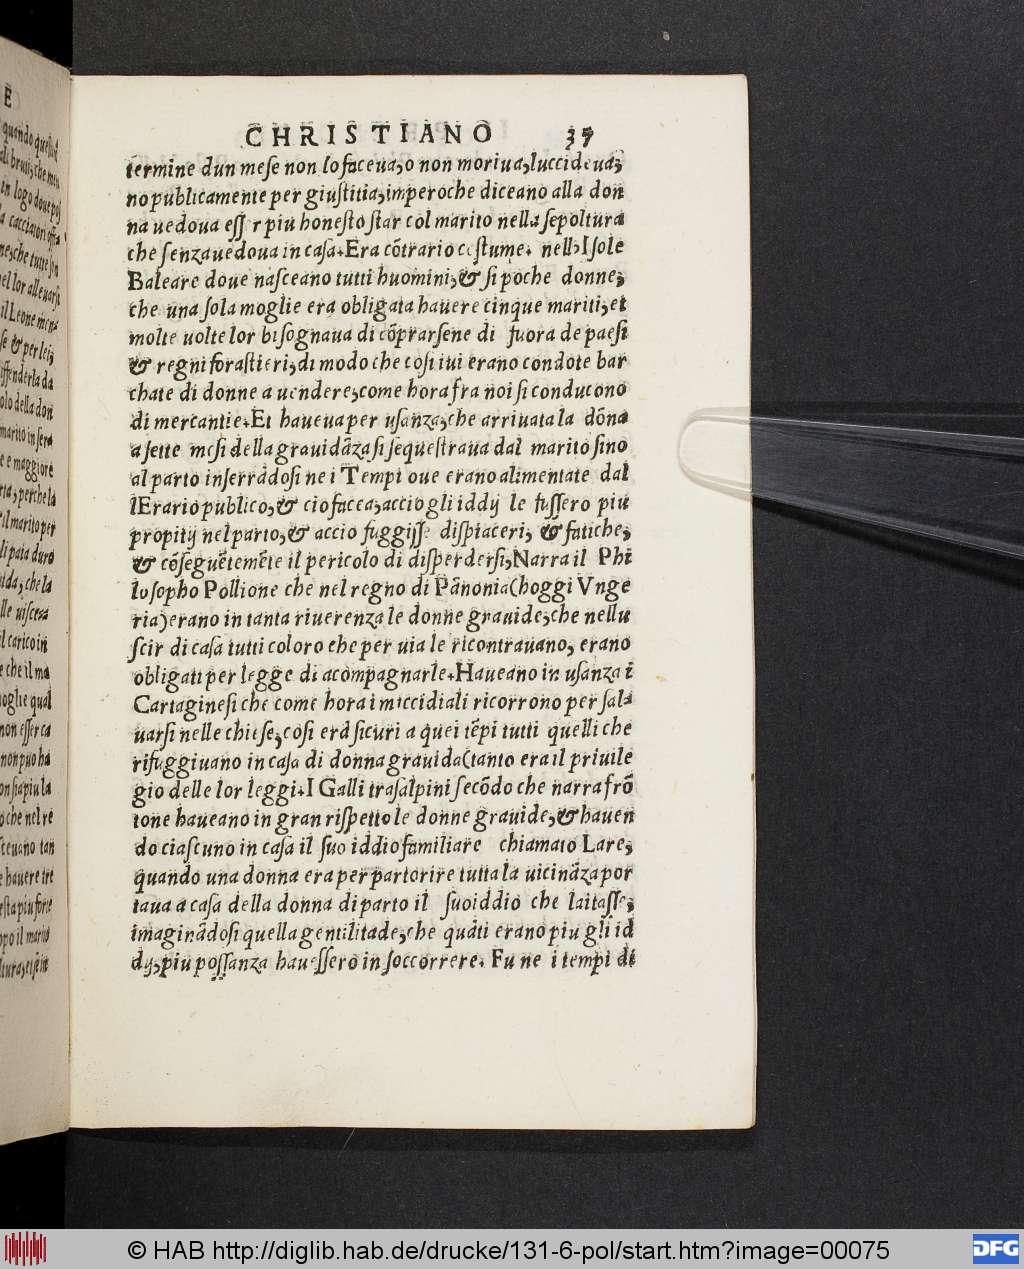 CHRISTIANO 37
termine dun meſe non lo faceua, o non moriua, luccideua,
no publicamente per giuſtitia, imperoche diceano alla don
na uedoua eſſ r piu honeſto ſtar col marito nella ſepoltura
che ſenza uedoua in caſa. Era cōtrario coſtume. nell'Iſole
Baleare doue naſceano tutti huomini, & ſi poche donne,
che una ſola moglie era obligata hauere cinque mariti, et
molte uolte lor biſognaua di cōprarſene di fuora de paeſi
& regni foraſtieri, di modo che coſi iui erano condote bar
chate di donne a uendere, come hora fra noi ſi conducono
di mercantie. Et haueua per uſanza, che arriuata la dōna
a ſette meſi della grauidāza ſi ſequeſtraua dal marito ſino
al parto inſerrādoſi ne i Tempi oue erano alimentate dal
lErario publico, & cio facea, accio gli iddij le fuſſero piu
propitij nel parto, & accio fuggiſſe diſpiaceri, & fatiche,
& cōſeguētemēte il pericolo di diſperderſi, Narra il Phi
loſopho Pollione che nel regno di Pānonia (hoggi Vnge
ria) erano in tanta riuerenza le donne grauide, che nellu
ſcir di caſa tutti coloro che per uia le ricontrauano, erano
obligati per legge di acompagnarle. Haueano in uſanza i
Cartagineſi che come hora i miccidiali ricorrono per ſal-
uarſi nelle chieſe, coſi erā ſicuri a quei tēpi tutti quelli che
rifuggiuano in caſa di donna grauida (tanto era il priuile
gio delle lor leggi. I Galli traſalpini ſecōdo che narra frō
tone haueano in gran riſpetto le donne grauide, & hauen
do ciaſcuno in caſa il ſuo iddio familiare chiamato Lare,
quando una donna era per partorire tutta la uicināza por
taua a caſa della donna di parto il ſuo iddio che laitaſſe,
imaginādoſi quella gentilitade, che quāti erano piu gli id
dij, piu poſſanza haueſſero in ſoccorrere. Fu ne i tempi di
E
quando
il Leone
ſe & per lei,
olo della don
marito in ſera
e e maggiore
, perche la
il marito per
li paia duro
ida, che la
lle uiſcera
il carico in
e che il ma
moglie qual
non eſſer ca
non puo ha
on ſia piu la
o che nel re
ſteuano tan
e hauere tre
eſta piu forte
ppo il marito
© HAB http://diglib.hab.de/drucke/131-6-pol/start.htm?image=00075
DFG